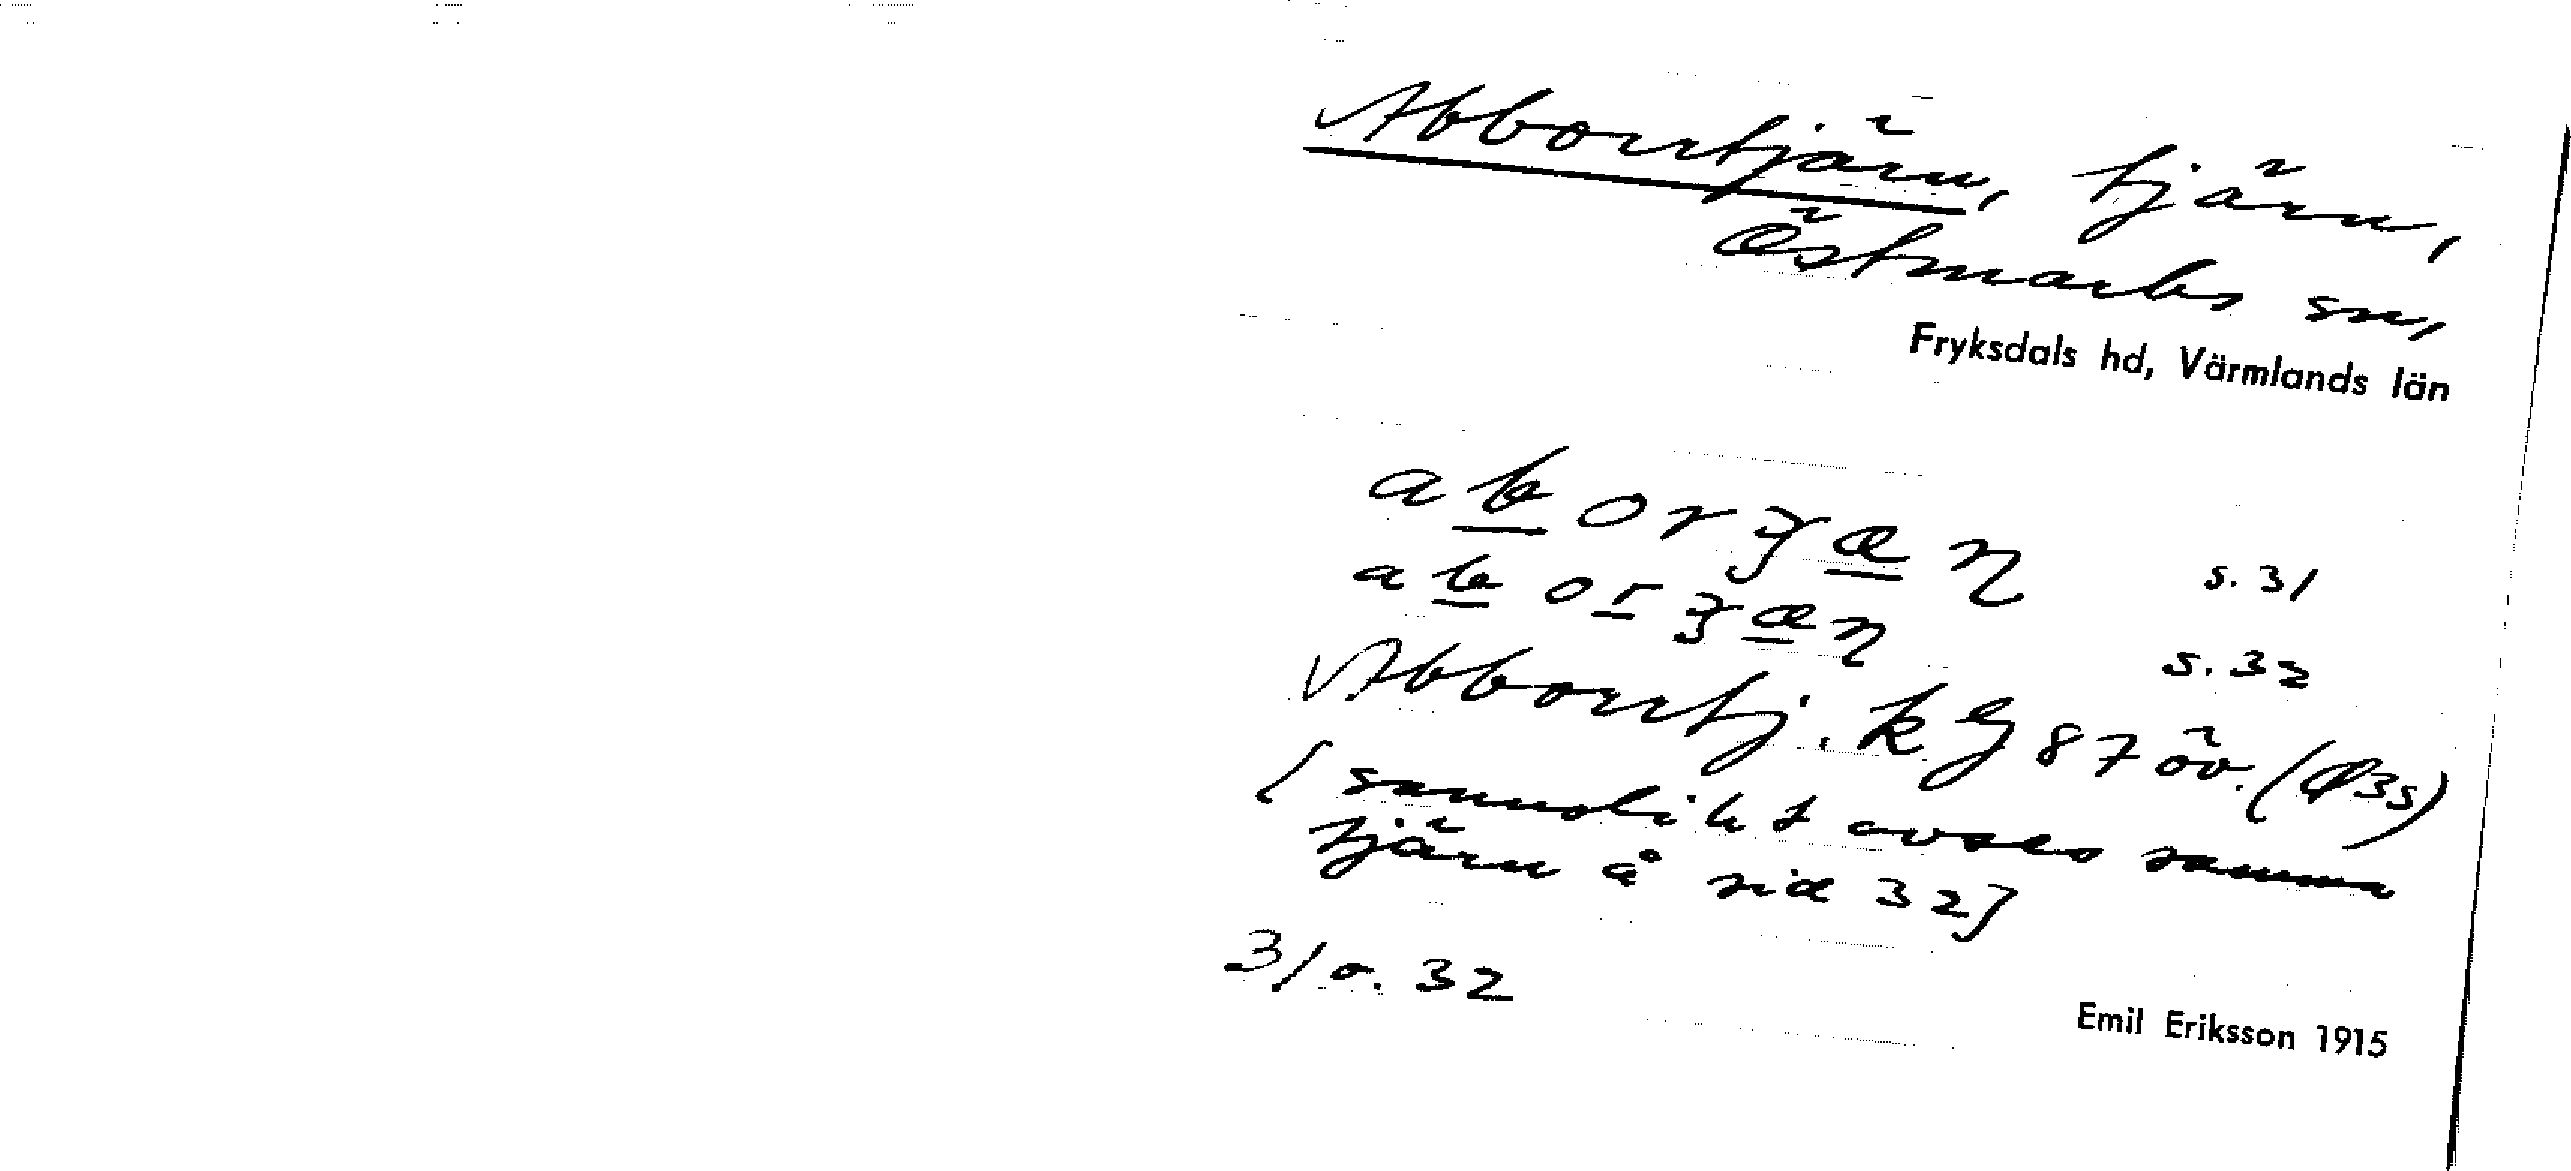 Abborrtjärn, tjärn,
Östmarks sn,
Fryksdals hd, Värmlands län
s. 31
s. 32
Abborrtj. kG 87 öv. (Ö35)
[sannolikt avses samma
tjärn å sid 32]
31 o. 32
Emil Eriksson 1915